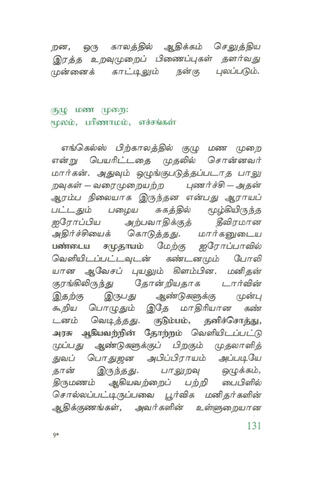 றன, ஒரு காலத்தில் ஆதிக்கம் செலுத்திய
இரத்த உறவுமுறைப் பிணைப்புகள் தளர்வது
முன்னைக் காட்டிலும் நன்கு புலப்படும்.
குழு மண முறை:
மூலம், பரிணாமம், எச்சங்கள்
எங்கெல்ஸ் பிற்காலத்தில் குழு மண முறை
என்று பெயரிட்டதை முதலில் சொன்னவர்
மார்கன். அதுவும் ஒழுங்குபடுத்தப்படாத பாலு
றவுகள் — வரைமுறையற்ற புணர்ச்சி — அதன்
ஆரம்ப நிலையாக இருந்தன என்பது ஆராயப்
பட்டதும் பழைய சுகத்தில் மூழ்கியிருந்த
ஐரோப்பிய அற்பவாதிக்குத் தீவிரமான
அதிர்ச்சியைக் கொடுத்தது. மார்கனுடைய
பண்டைய சமுதாயம் மேற்கு ஐரோப்பாவில்
வெளியிடப்பட்டவுடன் கண்டனமும் போலி
யான ஆவேசப் புயலும் கிளம்பின. மனிதன்
குரங்கிலிருந்து தோன்றியதாக டார்வின்
இதற்கு இருபது ஆண்டுகளுக்கு முன்பு
கூறிய பொழுதும் இதே மாதிரியான கண்
டனம் வெடித்தது. குடும்பம், தனிச்சொத்து,
அரசு ஆகியவற்றின் தோற்றம் வெளியிடப்பட்டு
முப்பது ஆண்டுகளுக்குப் பிறகும் முதலாளித்
துவப் பொதுஜன அபிப்பிராயம் அப்படியே
தான் இருந்தது. பாலுறவு ஒழுக்கம்,
திருமணம் ஆகியவற்றைப் பற்றி பைபிளில்
சொல்லப்பட்டிருப்பவை பூர்விக மனிதர்களின்
ஆதிக்குணங்கள், அவர்களின் உள்ளுறையான
131
9*